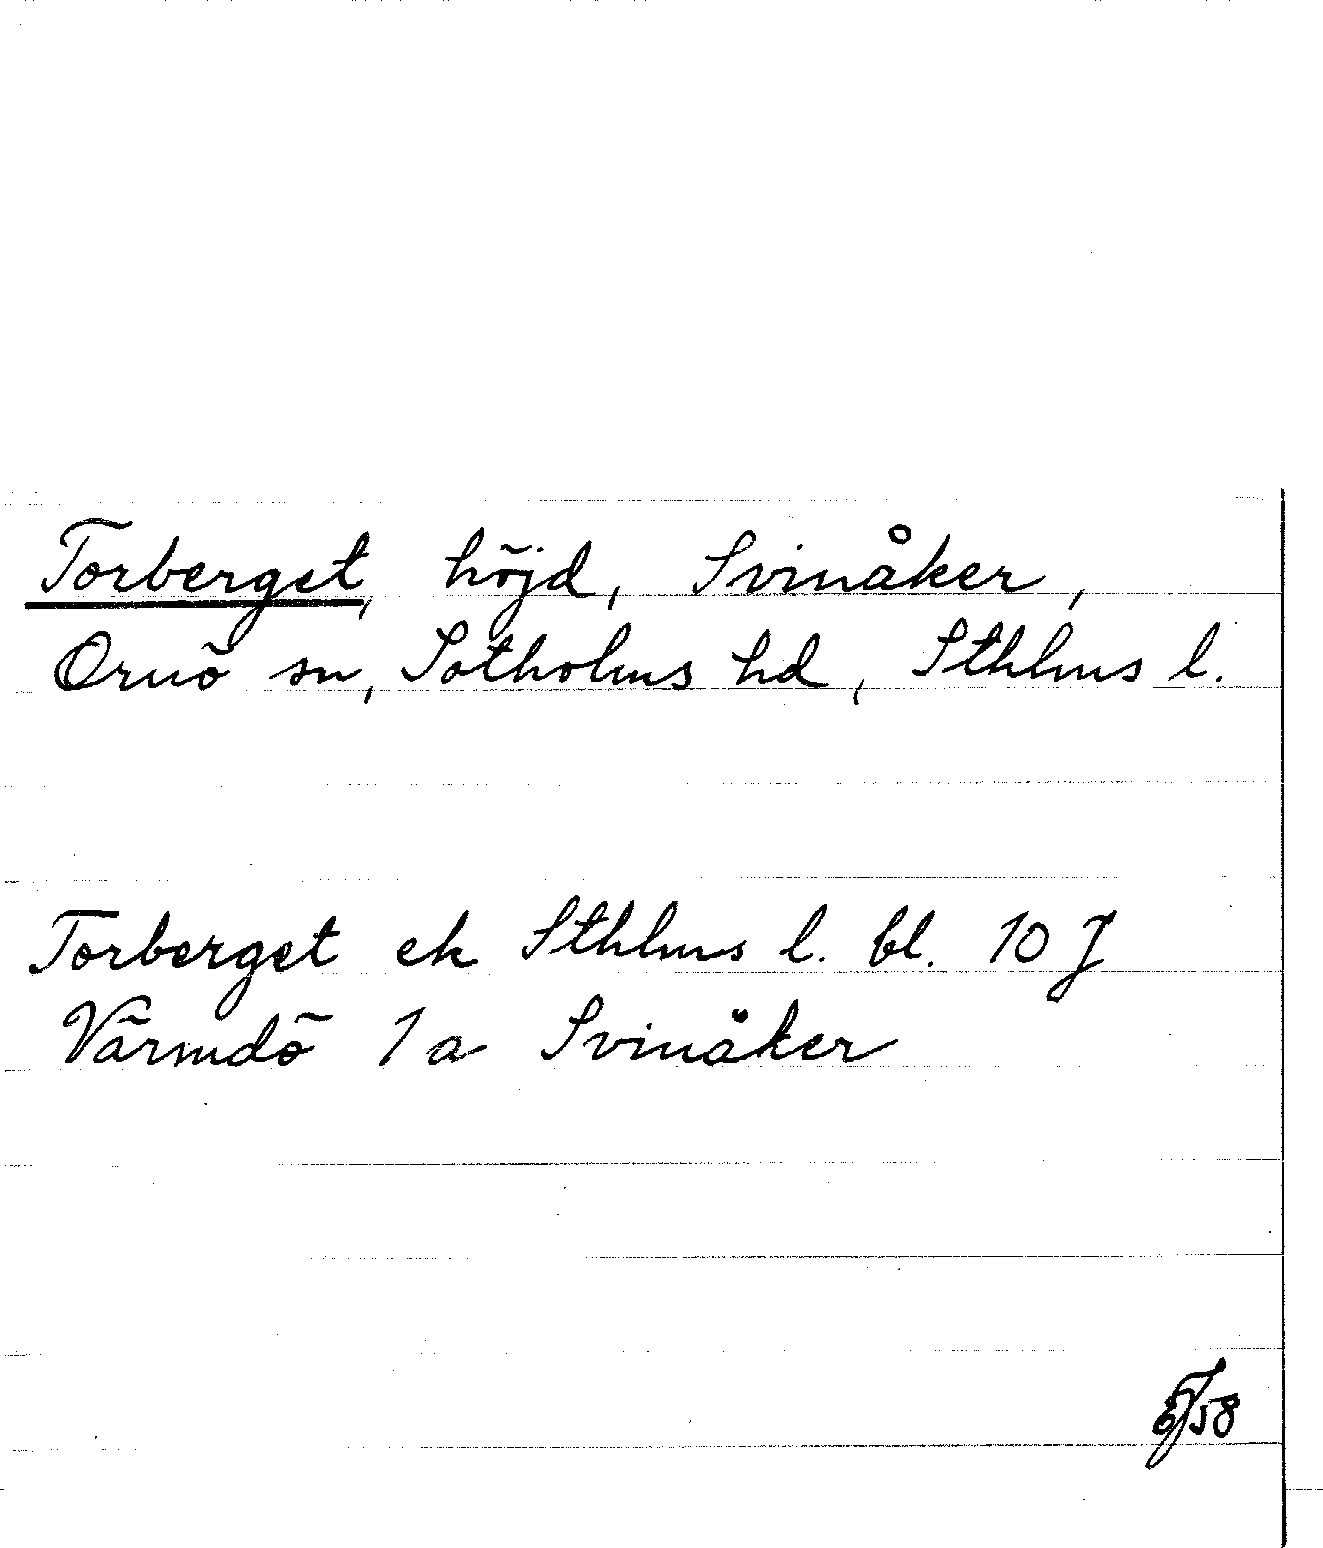 Torberget, höjd, Svinåker,
Ornö sn, Sotholms hd, Sthlms l.
Torberget ek Sthlms l. bl. 10 J
Värmdö 1a Svinåker
/58